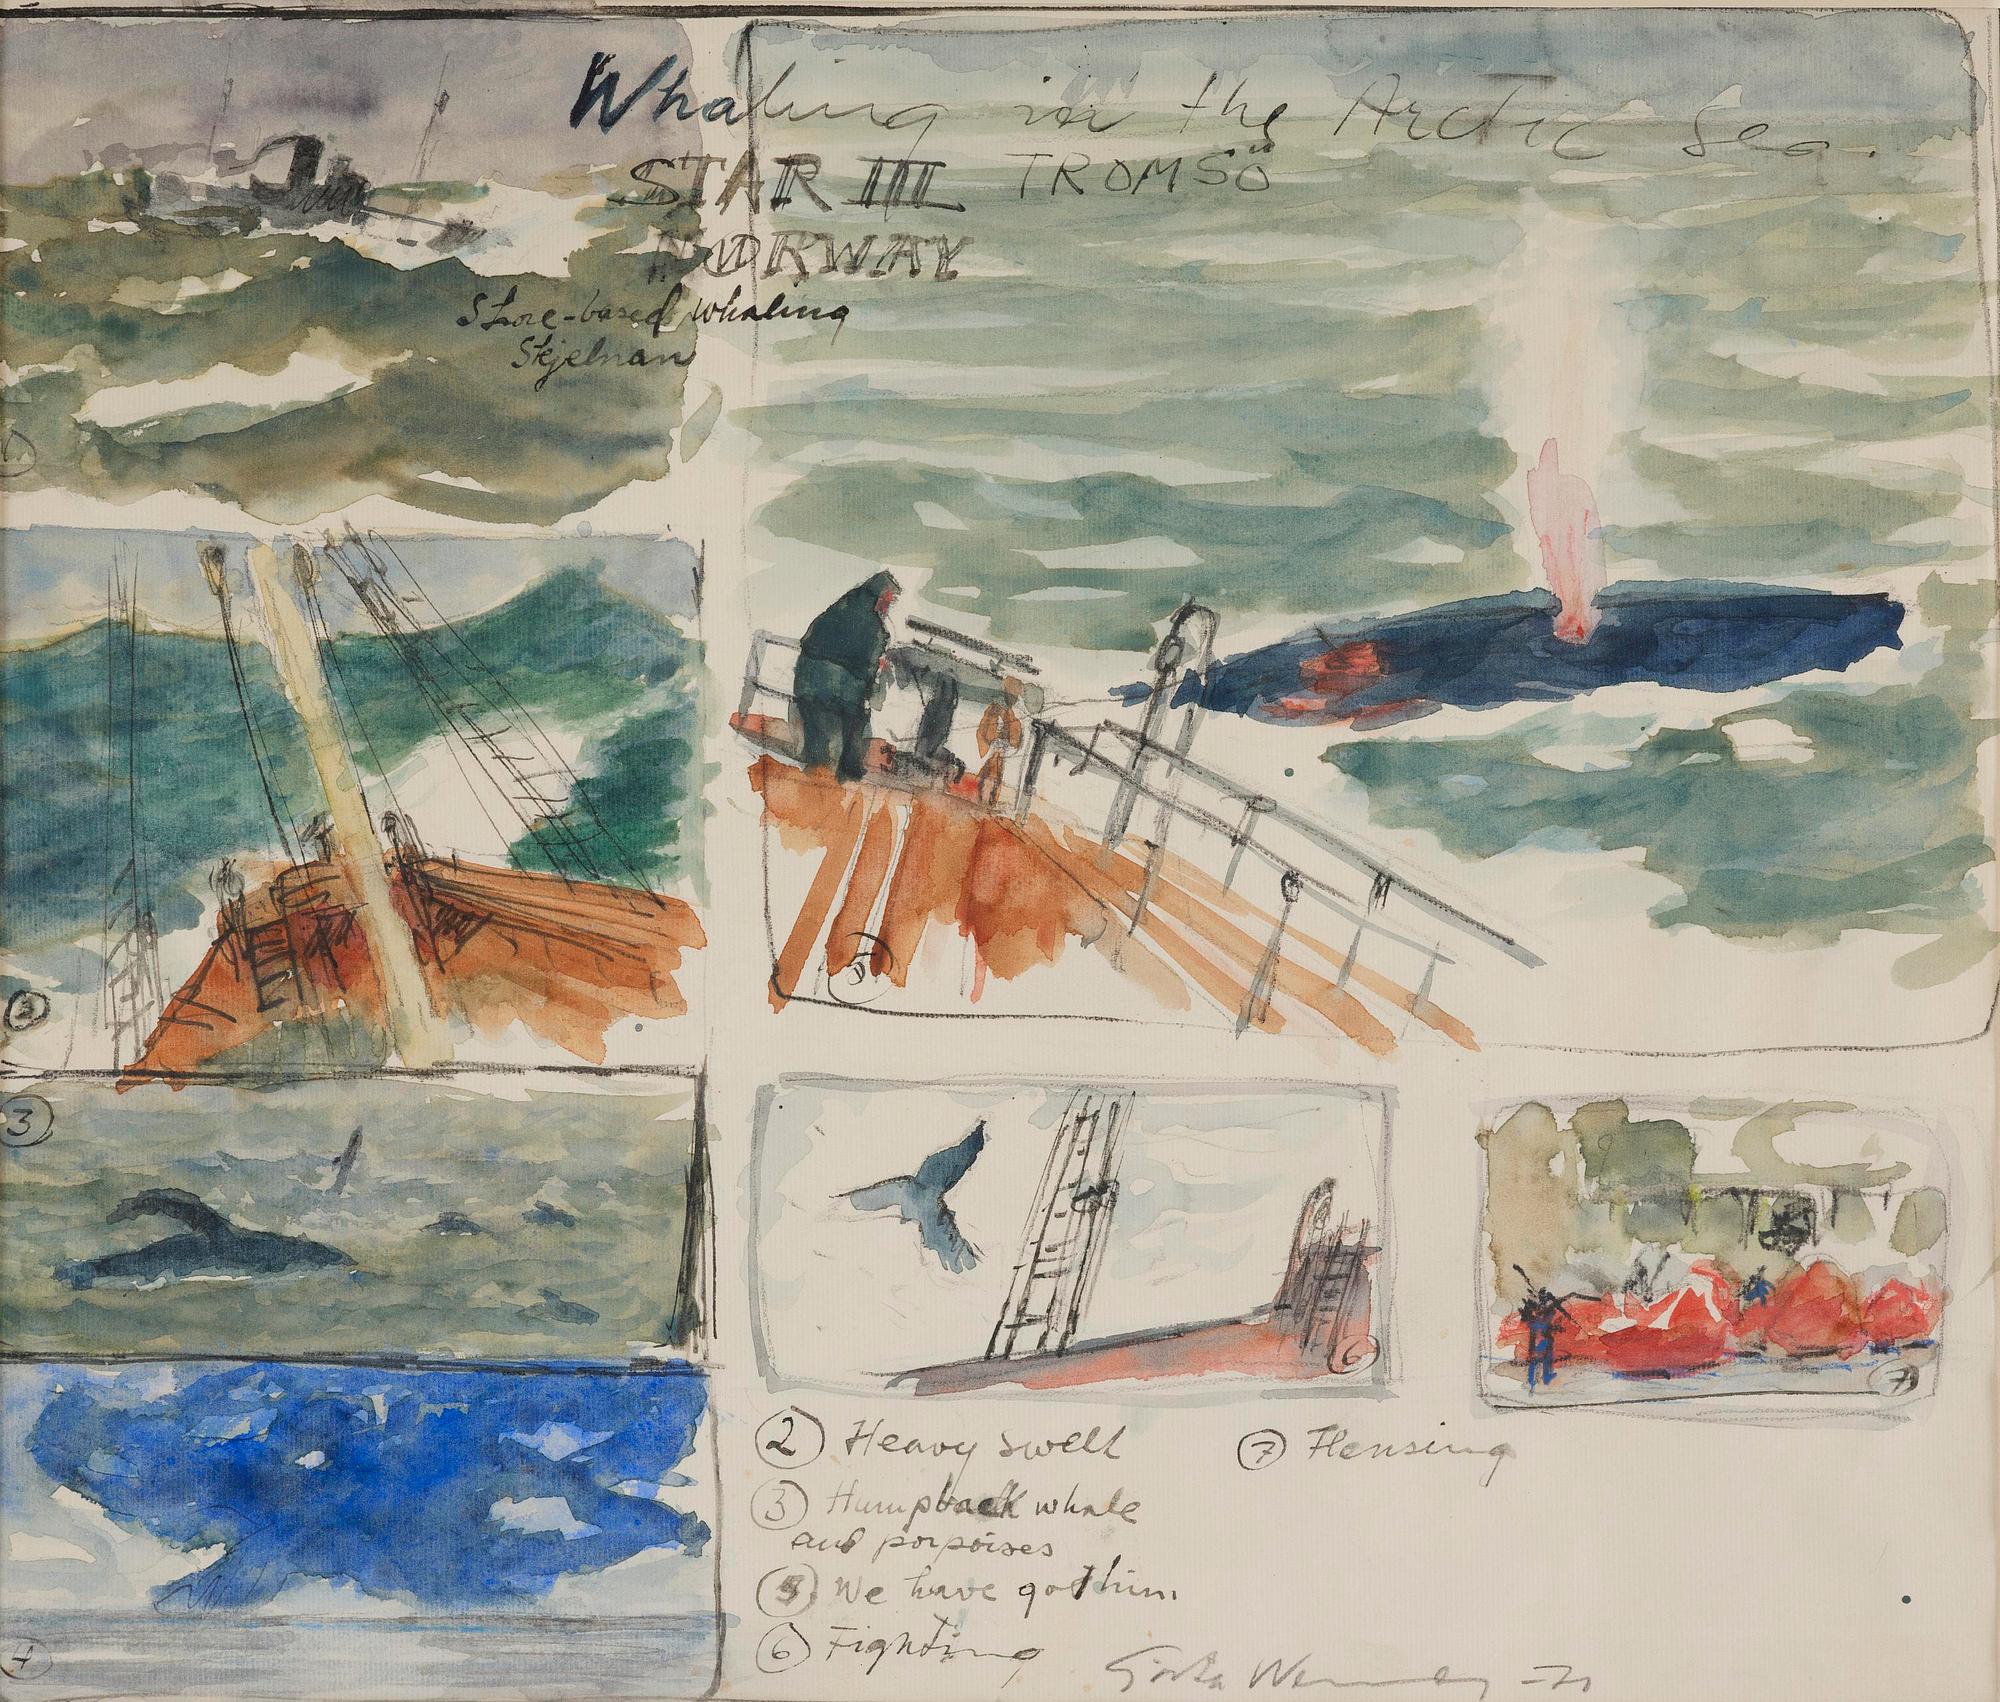 Whaling in the Arctic Sea.
STAR III TROMSÖ
NORWAY
Shore-based whaling
Skjelnan
1
2
3
4
5
6
7
2 Heavy swell
3 Humpback whale
and porpoises
5 We have got him
6 Fighting
7 Flensing
Gösta